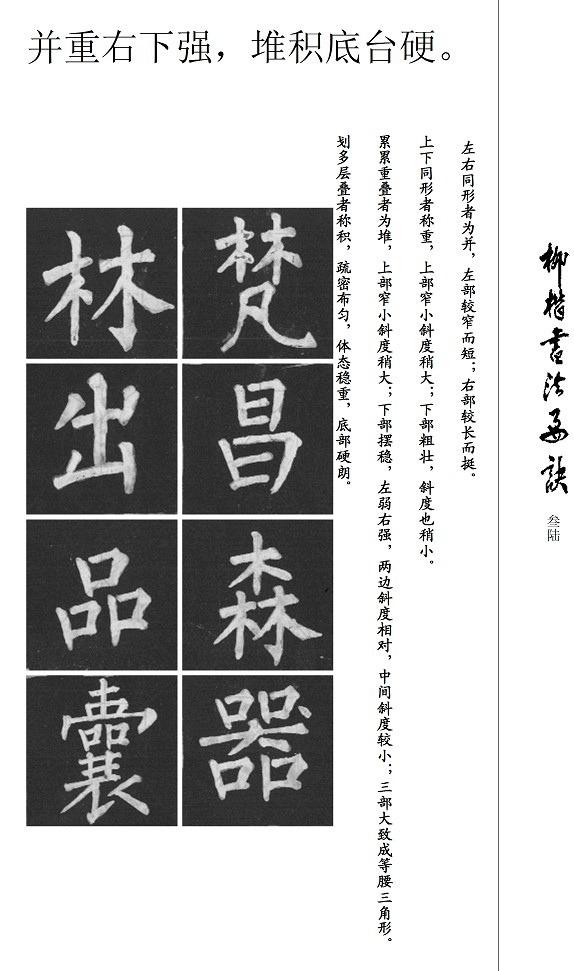 并重右下强，堆积底台硬。
左右同形者为并，左部较窄而短；右部较长而挺。
上下同形者称重，上部窄小斜度稍大；下部粗壮，斜度也稍小。
累累重叠者为堆，上部窄小斜度稍大；下部摆稳，左弱右强，两边斜度相对，中间斜度较小；三部大致成等腰三角形。
划多层叠者称积，疏密布匀，体态稳重，底部硬朗。
梵
林
昌
出
森
品
器
囊
柳楷书法要诀
叁陆